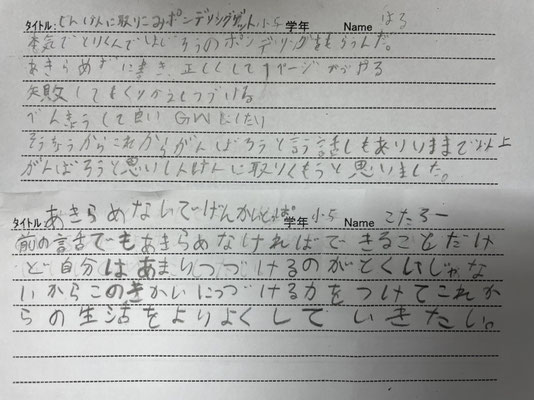 タイトル：しんけんに取りこみボンデリングゲット 小5 学年 Name はる
本気でとりくんで
あきらめずに書き、正しくして1ページずつやる
失敗してもくりかえしつづける
べんきょうして良いGWにしたい
そうちょうからこれからがんばろうと言う話しもありいままで以上
がんばろうと思いしんけんに取りくもうと思いました。
タイトル：あきらめないでげんかいとっぱ 小5 学年 Name こたろー
前の話でもあきらめなければできることだけ
ど自分はあまりつづけるのがとくいじゃな
いからこのきかいにつづける力をつけてこれか
らの生活をよりよくしていきたい。